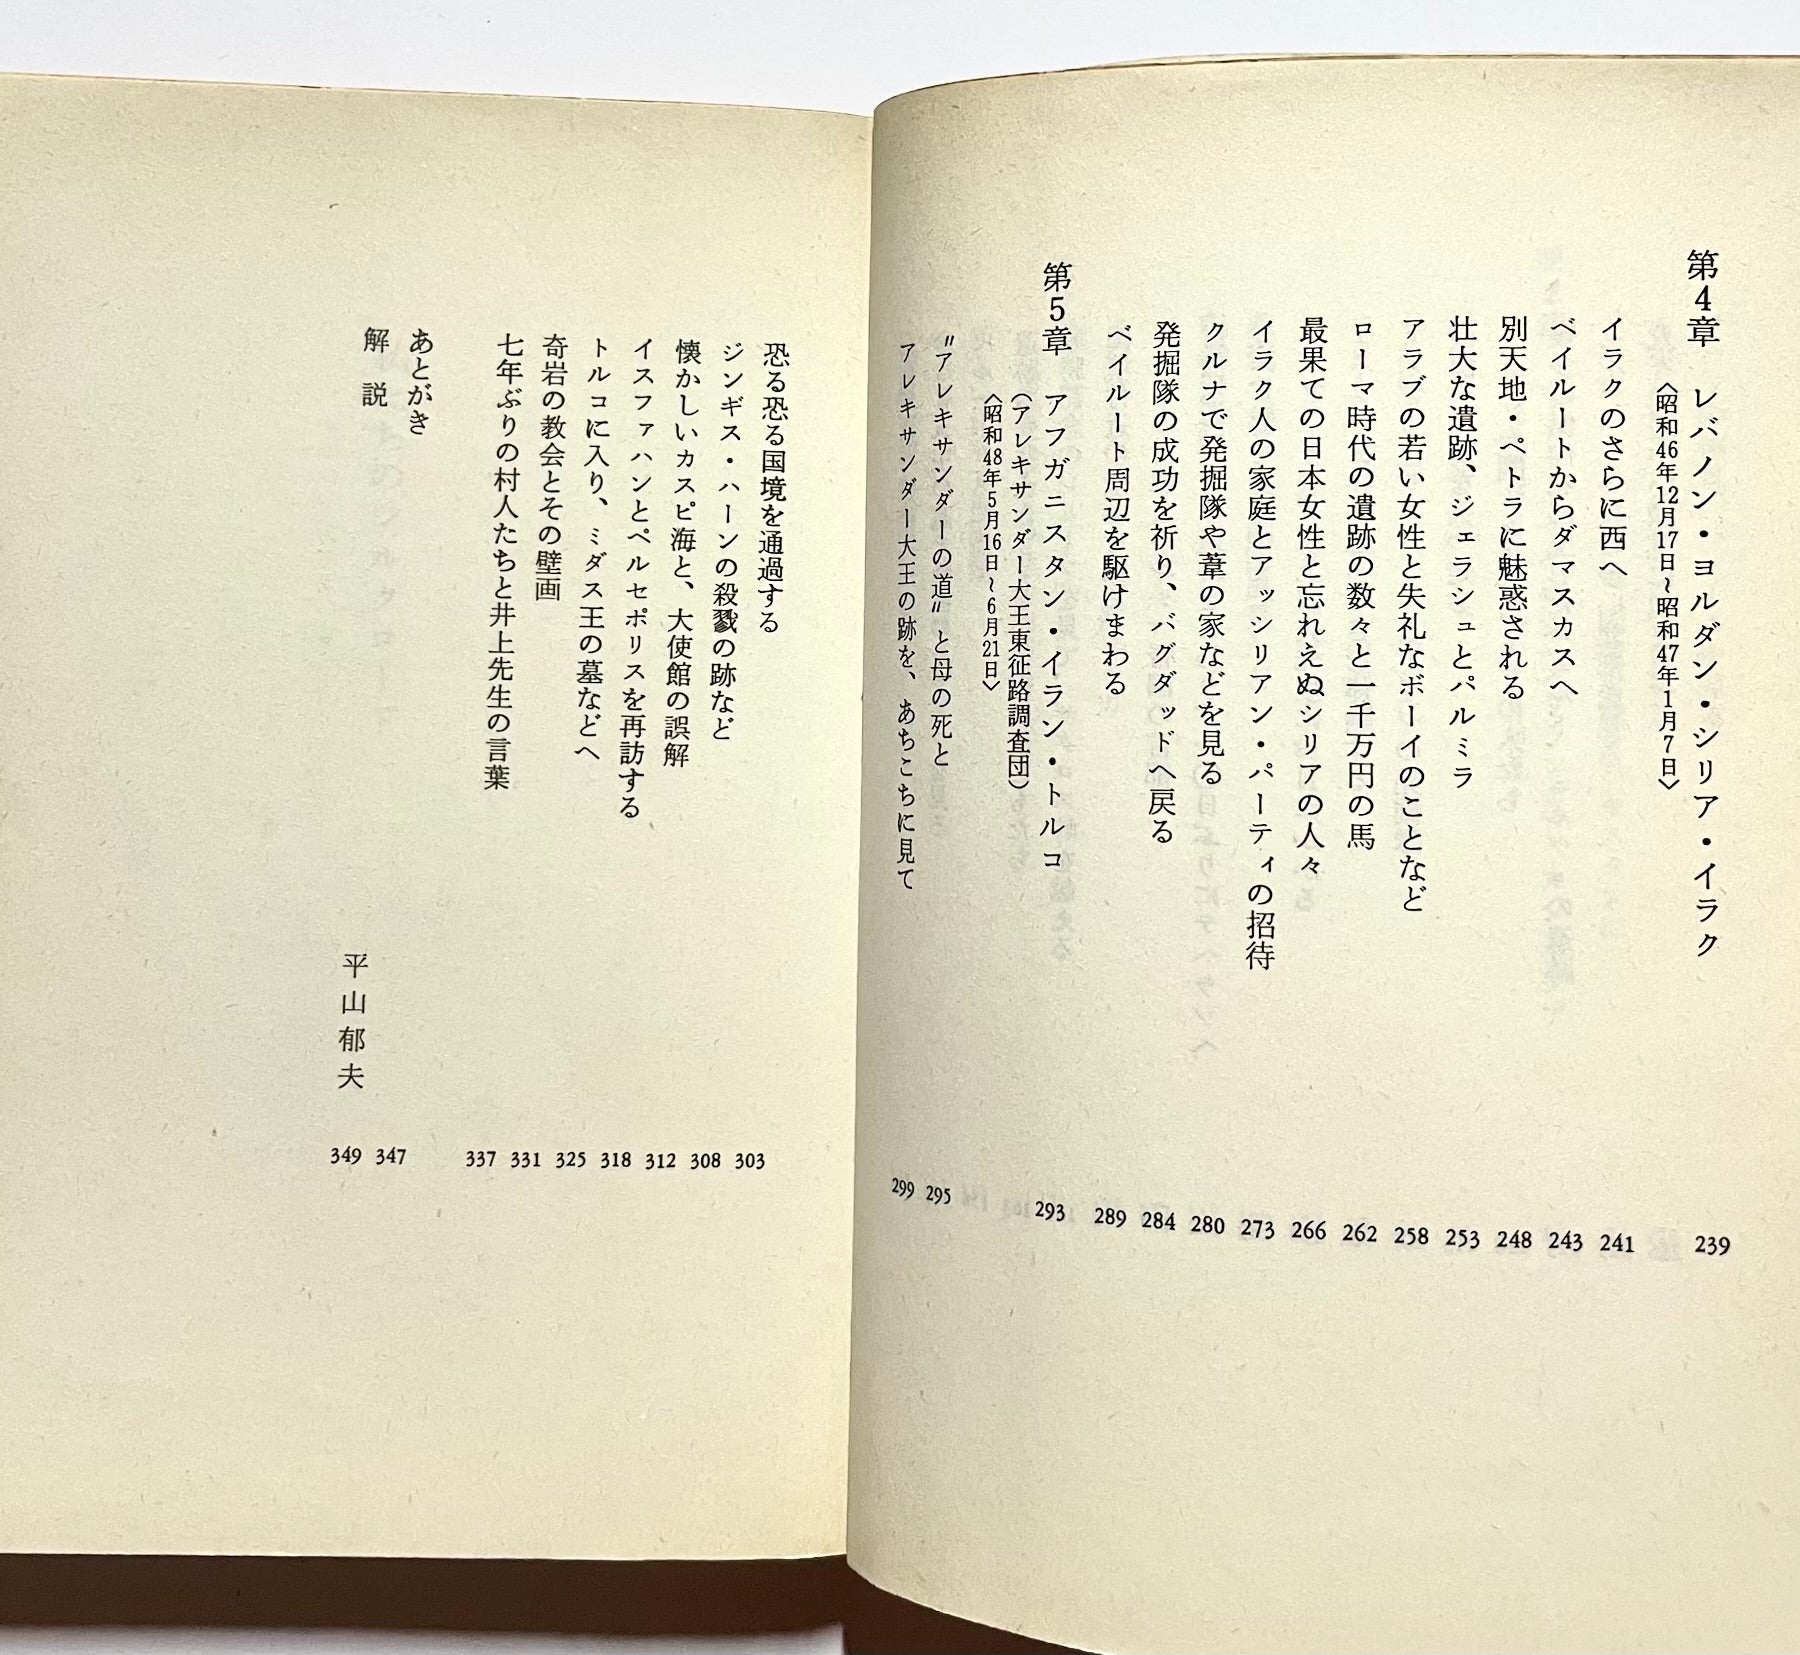 第4章 レバノン・ヨルダン・シリア・イラク 239
〈昭和46年12月17日~昭和47年1月7日〉
イラクのさらに西へ 241
ベイルートからダマスカスへ 243
別天地・ペトラに魅惑される 248
壮大な遺跡、ジェラシュとパルミラ 253
アラブの若い女性と失礼なボーイのことなど 258
ローマ時代の遺跡の数々と一千万円の馬 262
最果ての日本女性と忘れえぬシリアの人々 266
イラク人の家庭とアッシリアン・パーティの招待 273
クルナで発掘隊や葦の家などを見る 280
発掘隊の成功を祈り、バグダッドへ戻る 284
ベイルート周辺を駆けまわる 289
第5章 アフガニスタン・イラン・トルコ 293
(アレキサンダー大王東征路調査団)
〈昭和48年5月16日~6月21日〉
〝アレキサンダーの道〟と母の死と 295
アレキサンダー大王の跡を、あちこちに見て 299
恐る恐る国境を通過する 303
ジンギス・ハーンの殺戮の跡など 308
懐かしいカスピ海と、大使館の誤解 312
イスファハンとペルセポリスを再訪する 318
トルコに入り、ミダス王の墓などへ 325
奇岩の教会とその壁画 331
七年ぶりの村人たちと井上先生の言葉 337
あとがき 347
解説 平山郁夫 349